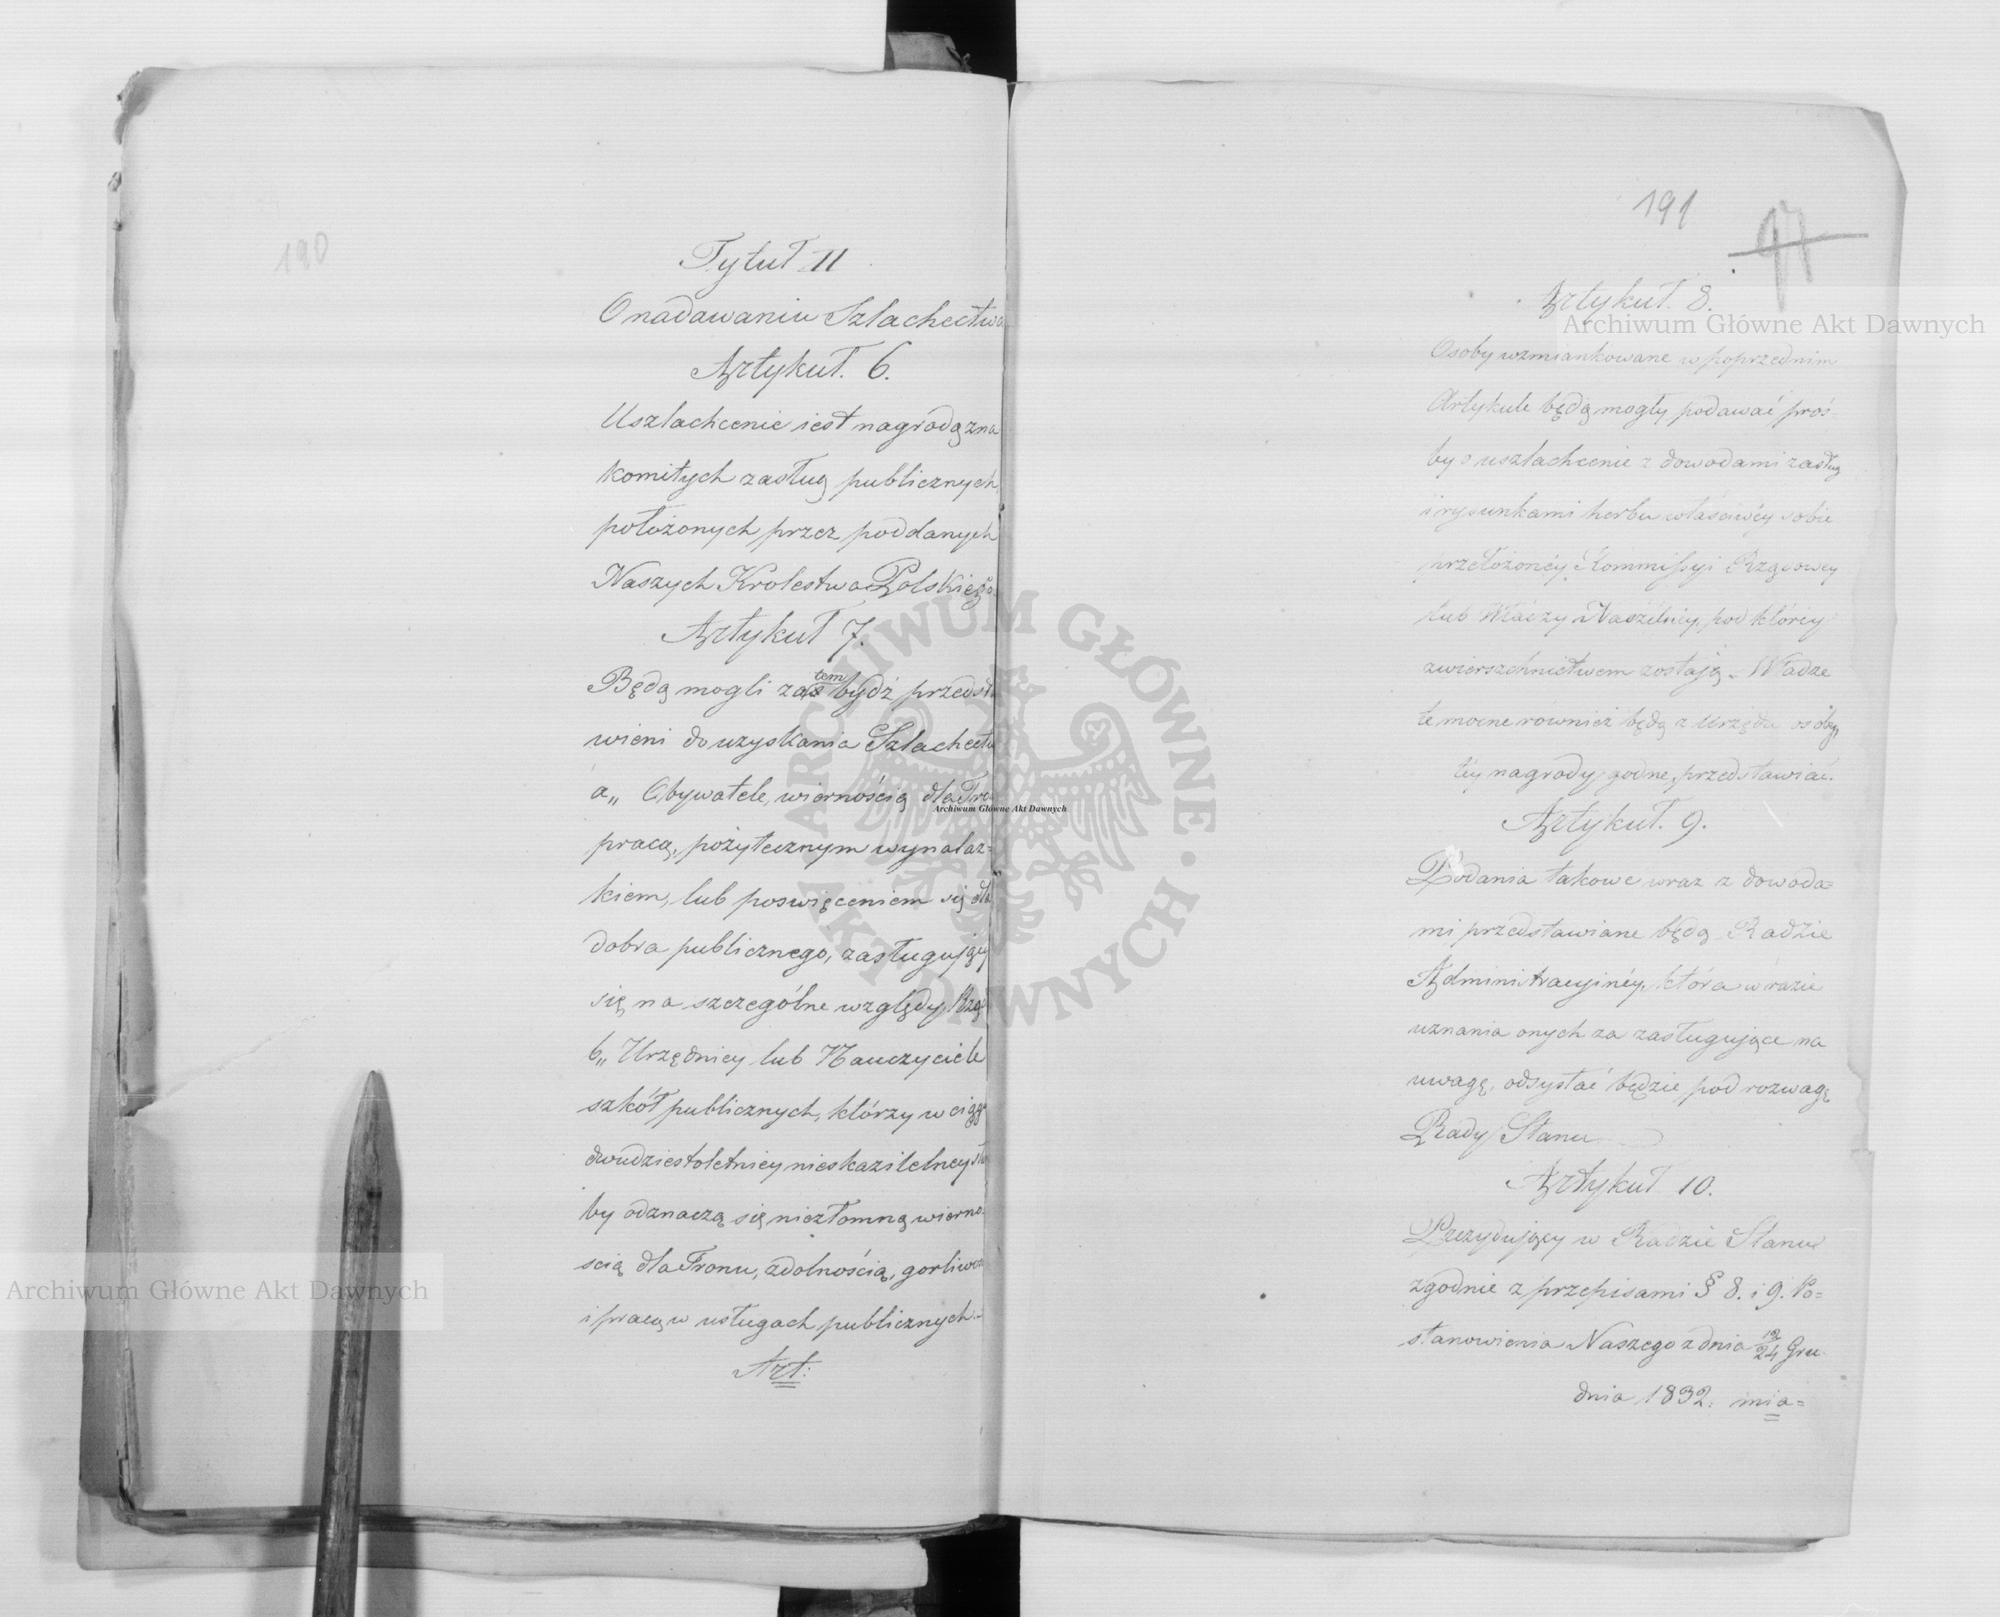 190
Tytuł II
O nadawaniu Szlachectwa
Artykuł. 6.
Uszlachcenie iest nagrodą zna
komitych zasług publicznych,
położonych przez poddanych
Naszych Krolestwa Polskiego.
Artykuł 7.
Będą mogli zatem bydź przedst
wieni do uzyskania Szlachectw
a„ Obywatele, wiernością dla Tro
pracą, pożytecznym wynalaz=
kiem, lub poswięceniem się dla
dobra publicznego, zasługujący
się na szczególne względy Rzą
b„ Urzędnicy lub Nauczyciele
szkół publicznych, którzy w ciągu
dwudziestoletniey nieskazitelney słu
by odznaczą się niezłomną wierno-
scią dla Tronu, zdolnością, gorliwoś
i pracą w usługach publicznych.-
Art:
191
97
Artykuł. 8.
Osoby wzmiankowane w poprzednim
Artykule będą mogły podawać proś-
by o uszlachcenie z dowodami zasług
i rysunkami herbu właściwéy sobie
przełożonéy Kommissyi Rządowey
lub Władzy Naczélnéy, pod któréy
zwierszchnictwem zostają. - Władze
te mocne rownież będą z urzędu osoby,
téy nagrody godne, przedstawiać.
Artykuł. 9.
Podania takowe wraz z dowoda=
mi przedstawiane będą Radzie
Administracyinéy, która w razie
uznania onych za zasługujące na
uwagę, odsyłać będzie pod rozwagę
Rady Stanu
Artykuł 10.
Prezydujący w Radzie Stanu
zgodnie z przepisami § 8. i 9. Po=
stanowienia Naszego z dnia 12/24 Gru-
dnia 1832. mia=
Archiwum Główne Akt Dawnych
Archiwum Główne Akt Dawnych
Archiwum Główne Akt Dawnych
ARCHIWUM GŁÓWNE · AKT DAWNYCH ·